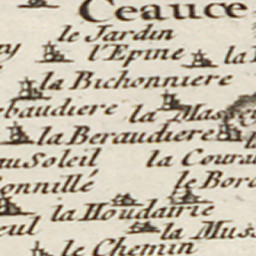 Ceauce
le Jardin
l'Epine la
la Bichonniere
baudiere la Mas
la Beraudiere
au Soleil la Coura
onnillé le Bor
la Houdairie
eul la Muss
le Chemin